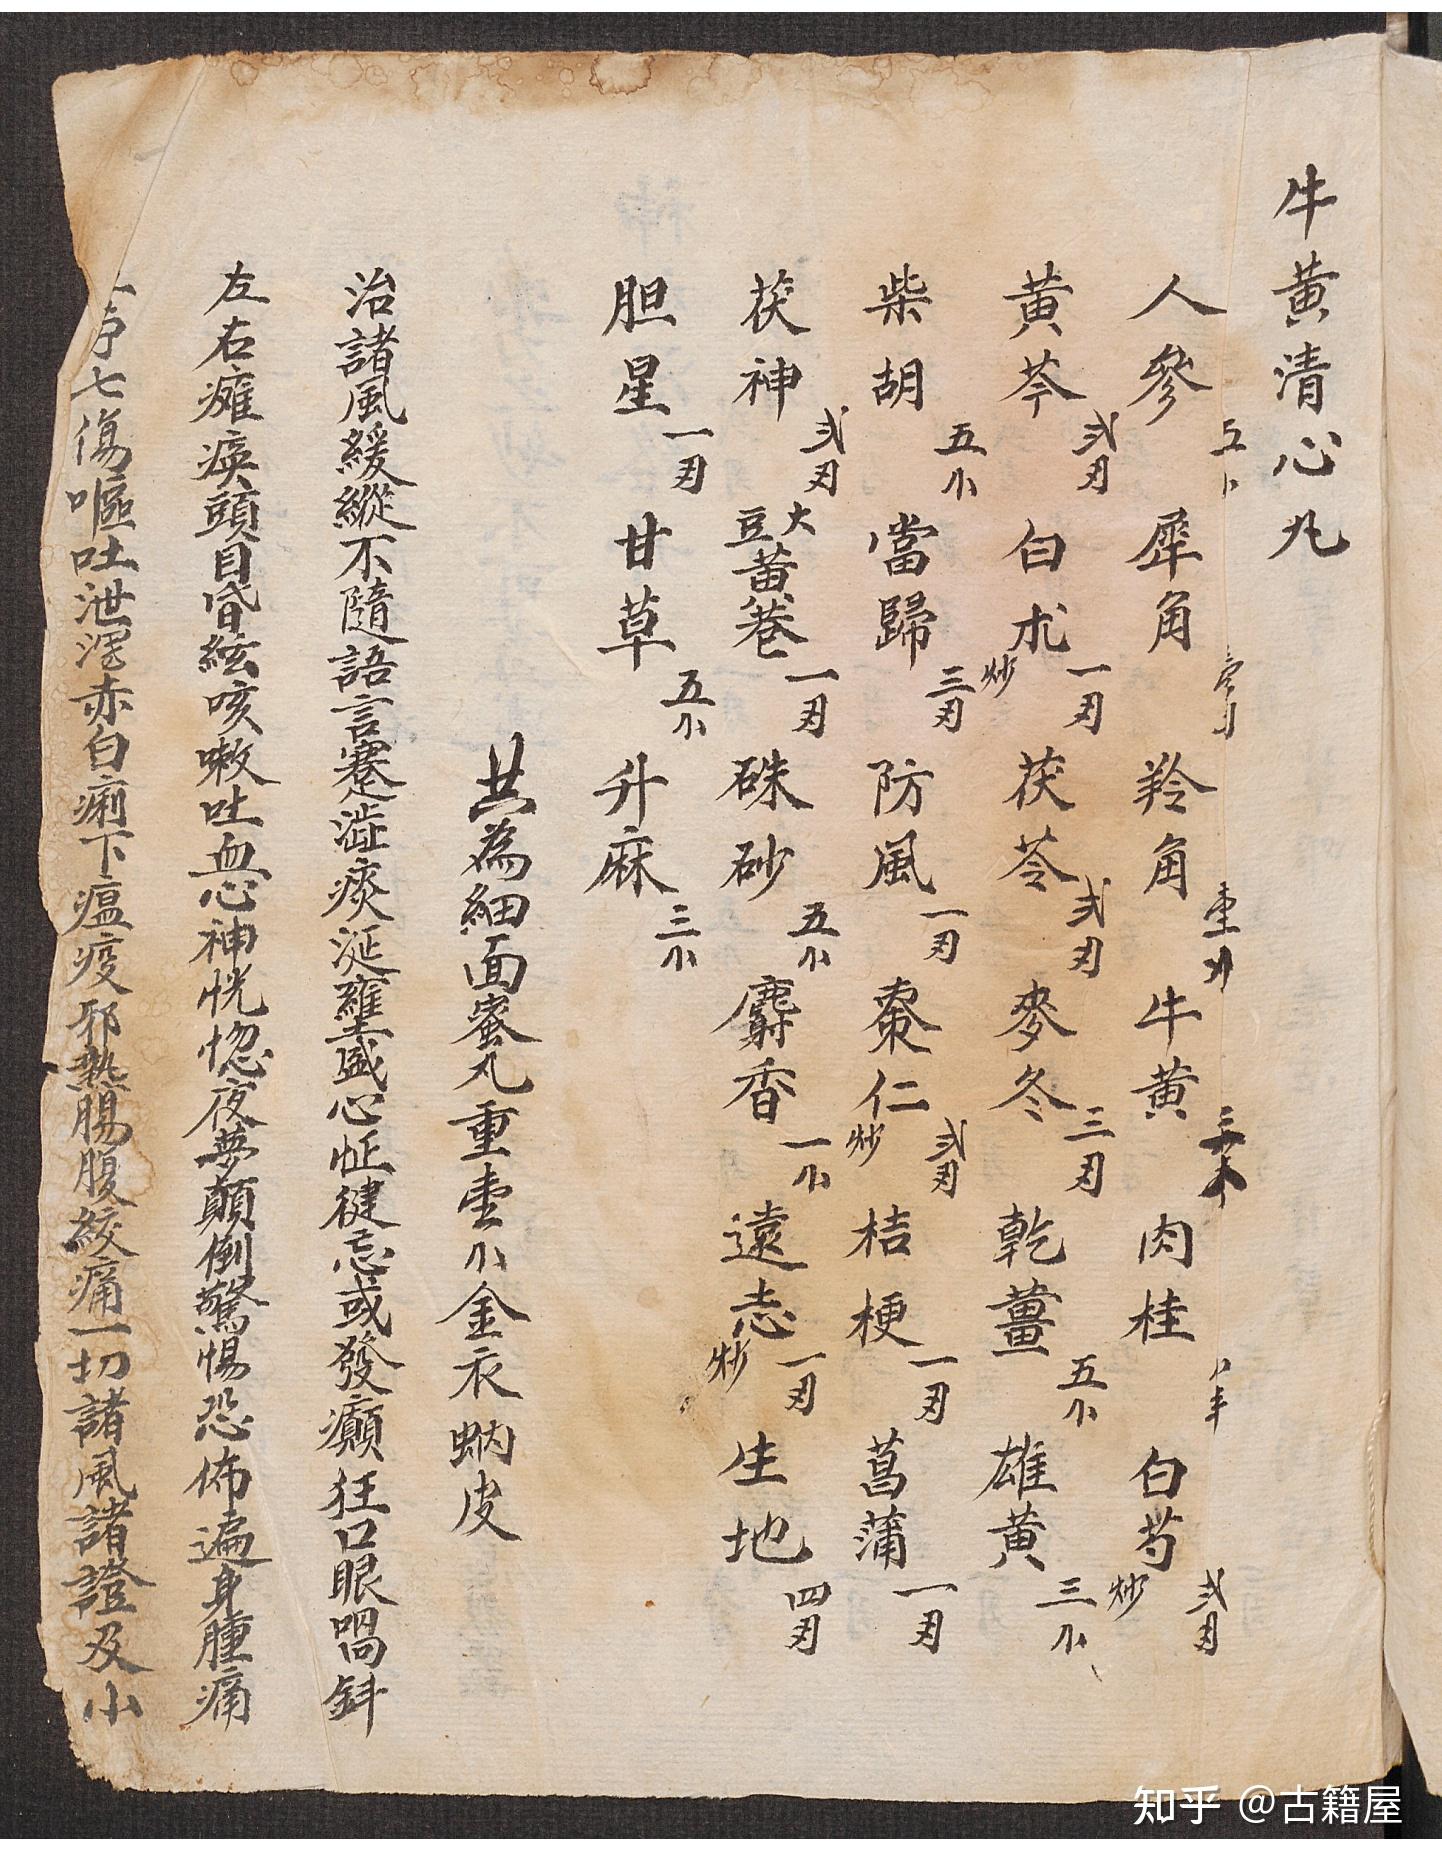 牛黃清心丸
人參 五 犀角 羚角 壹 牛黃 三 肉桂 白芍 炒 弍刃
黃芩 弍刃 白朮 炒 一刃 茯苓 弍刃 麥冬 三刃 乾薑 五小 雄黃 三小
柴胡 五小 當歸 三刃 防風 一刃 棗仁 炒 弍刃 桔梗 一刃 菖蒲 一刃
茯神 弍刃 大豆黃卷 一刃 硃砂 五小 麝香 一小 遠志 炒 一刃 生地 四刃
胆星 一刃 甘草 五小 升麻 三小
共為細面蜜丸重壹小金衣蚋皮
治諸風緩縱不隨語言蹇澁痰涎雍盛心怔健忘或發癲狂口眼喎斜
左右癱瘓頭目昏絃咳嗽吐血心神恍惚夜夢顛倒驚惕恐佈遍身腫痛
七傷嘔吐泄瀉赤白痢下瘟疫邪熱腸腹絞痛一切諸風諸證及小
知乎 @古籍屋